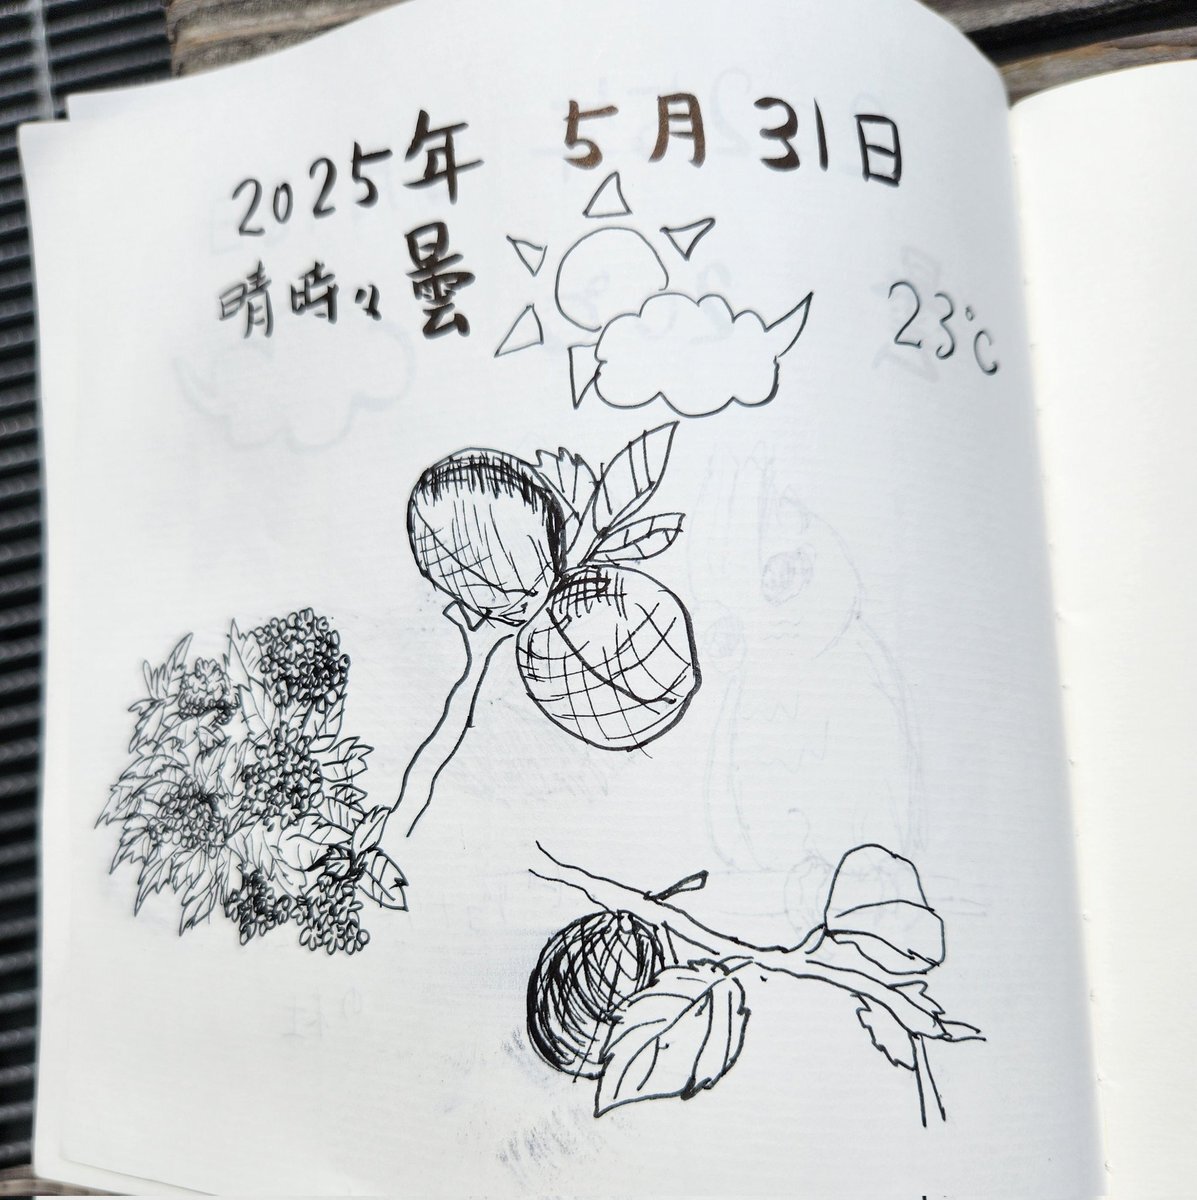 2025年 5月31日
晴時々曇
23℃